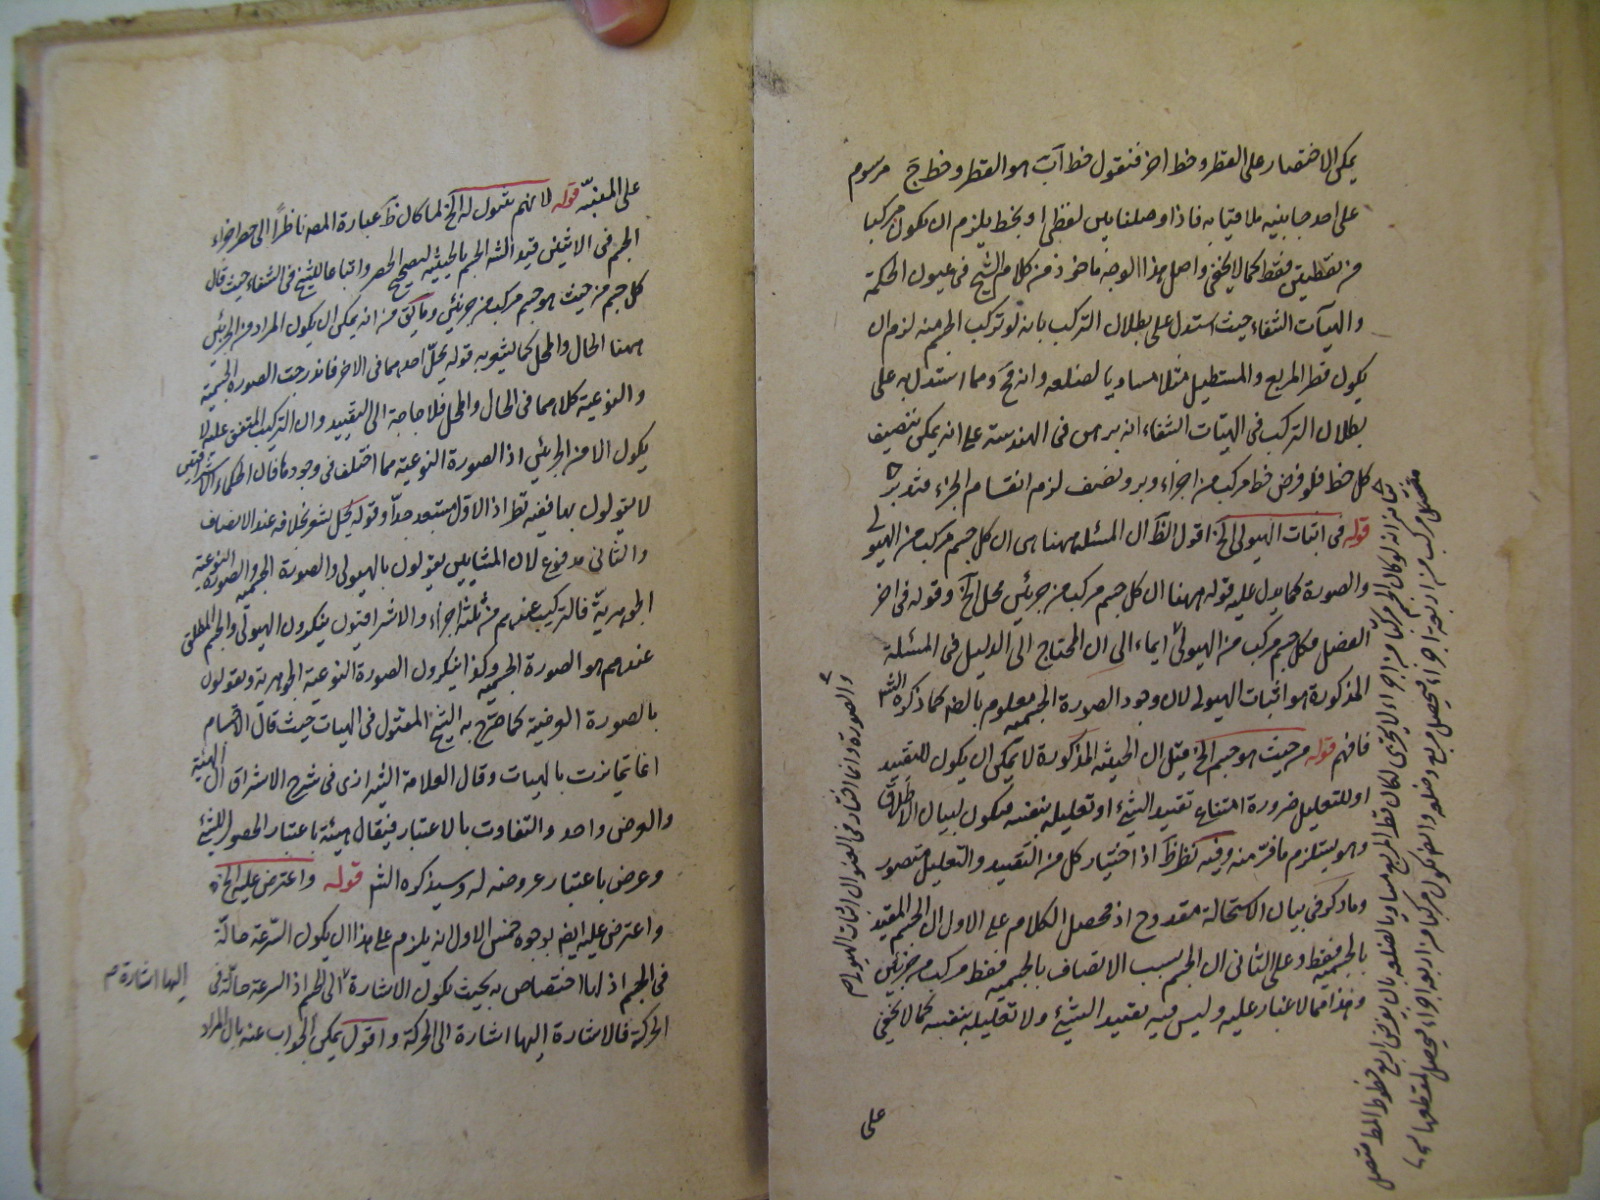 يمكن الاختصار على القطر وخط اخر فنقول خط آب هو القطر وخط ج مرسوم
على احد جانبيه ملاقيا به فاذا وصلنا بين بخط يلزم ان يكون مركبا
من نقطتين فقط كما لا يخفى واصل هذا الوجه ماخوذ من كلام الشيخ فى عيون الحكمة
والهيات الشفاء حيث استدل على بطلان التركب بانه لو تركب الجسم منه لزم ان
يكون قطر المربع والمستطيل مثلا مساويا لضلعه وانه مح ومما استدل به على
بطلان التركب فى الهيات الشفاء انه برهن فى الهندسة على انه يمكن تنصيف
كل خط فلو فرض خط مركب من اجزاء وتر ونصف لزم انقسام الجزء فتدبر
قوله فى اثبات الهيولى الخ اقول الظ ان المسئلة ههنا هى ان كل جسم مركب من الهيولى
والصورة كما يدل عليه قوله ههنا ان كل جسم مركب من جزئين يحل الخ وقوله فى اخر
الفصل فكل جسم مركب من الهيولى ايماء الى ان المحتاج الى الدليل فى المسئلة
المذكورة هو اثبات الهيولى لان وجود الصورة الجسمية معلوم بالضر كما ذكره الشر
فافهم قوله من حيث هو جسم الخ قيل ان الحيثية المذكورة لا يمكن ان يكون للتقييد
او للتعليل ضرورة امتناع تقييد الشئ او تعليله بنفسه فيكون لبيان الاطلاق
وهو يستلزم ما فر منه وفيه نظر ظ اذ اختيار كل من التقييد والتعليل متصور
وما ذكر فى بيان الاستحالة مقدوح اذ محصل الكلام على الاول ان الجسم المقيد
بالجسمية فقط وعلى الثانى ان الجسم بسبب الاتصاف بالجسمية فقط مركب من جزئين
وهذا مما لا غبار عليه وليس فيه تقييد الشئ ولا تعليله بنفسه كما لا يخفى
على
والصورة وانما اختار فى العنوان اثبات الهيولى م
انه لو كان الجسم مركبا من اجزاء لا يتجزى لكان قطر المربع مساويا لضلعه بان يفرض اربع خطوط
مركب من اربعة اجزاء فيحصل مربع
على المعنيه قوله لانهم يقول له الخ لما كان ظ عبارة المصه ناظرا الى حصر اجزاء
الجسم فى الاثنين قيد الشه الجسم بالحيثية ليصح الحصر واتباعا للشيخ فى الشفاء حيث قال
كل جسم من حيث هو جسم مركب من جزئين وما يق من انه يمكن ان يكون المراد من الجزئين
ههنا الحال والمحل كما يشعر به قوله يحل احدهما فى الاخر فاندرجت الصورة الجسمية
والنوعية كلاهما فى الحال والمحل فلا حاجة الى التقييد وان التركيب المتفق عليه لا
يكون الا من الجزئين اذ الصورة النوعية مما اختلف فى وجودها فان الحكماء الاشراقيين
لا يقولون بها ففيه نظر اذ الاول مستبعد جدا وقوله يحل يشعر بخلافه عند الانصاف
والثانى مدفوع لان المشايين يقولون بالهيولى والصورة الجسمية والصورة النوعية
الجوهرية فالتركيب عندهم من ثلثة اجزاء والاشراقيون ينكرون الهيولى والجسم المطلق
عندهم هو الصورة الجسمية وكذا ينكرون الصورة النوعية الجوهرية ويقولون
بالصورة العرضية كما صرح به الشيخ المقتول فى الهيات حيث قال الاجسام
انما تمايزت بالهيات وقال العلامة الشيرازى فى شرح الاشراق ان الهيئة
والعرض واحد والتفاوت بالاعتبار فيقال هيئة باعتبار الحصول للشئ
وعرض باعتبار عروضه له وسيذكره الشر قوله واعترض عليه الخ
واعترض عليه ايضا بوجوه خمس الاول انه يلزم على هذا ان يكون السرعة حالة
فى الجسم اذ لها اختصاص به بحيث يكون الاشارة الى الجسم اذ السرعة حالة فى
الحركة فالاشارة اليها اشارة الى الحركة واقول يمكن الجواب عنه بان المراد
اليها اشارة م